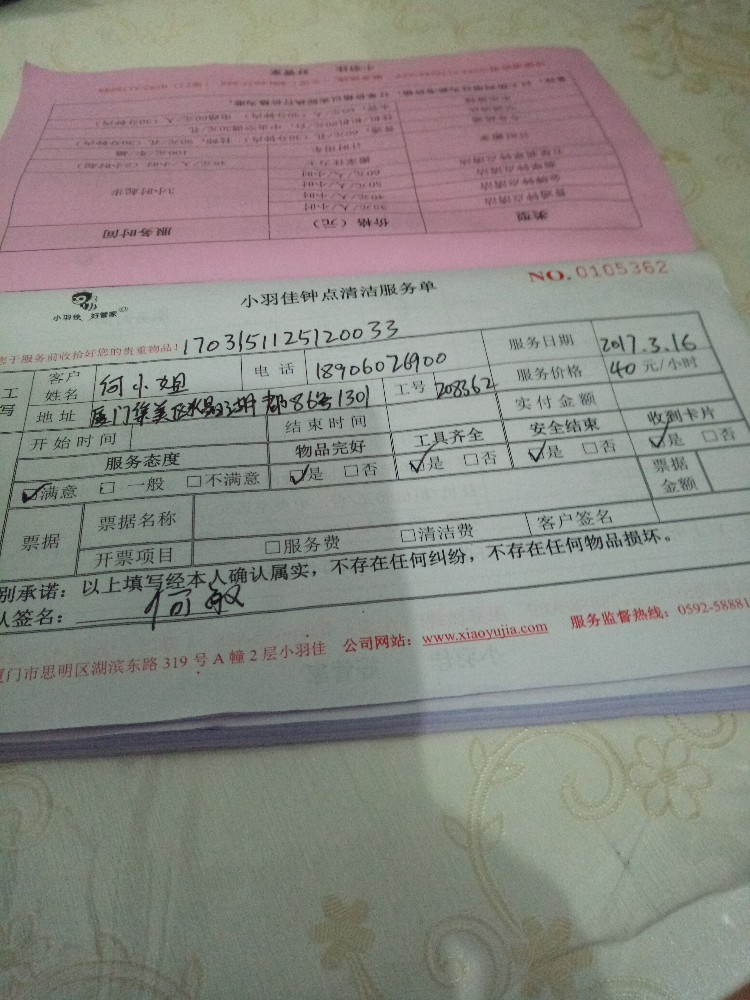 NO.0105362
小羽佳 好管家
小羽佳钟点清洁服务单
于服务前收拾好您的贵重物品!
1703151125120033
工
写
客户
姓名
何小姐
电话
18906026900
服务日期
2017.3.16
地址
厦门集美区水晶湖郡86号1301
工号
208362
服务价格
40元/小时
开始时间
结束时间
实付金额
服务态度
物品完好
工具齐全
安全结束
收到卡片
☑满意 □一般 □不满意
☑是 □否
☑是 □否
☑是 □否
☑是 □否
票据
票据名称
票据
金额
开票项目
□服务费 □清洁费
客户签名
别承诺:以上填写经本人确认属实,不存在任何纠纷,不存在任何物品损坏。
人签名:
何敏
厦门市思明区湖滨东路319号A幢2层小羽佳 公司网站:www.xiaoyujia.com 服务监督热线:0592-58881
类型
价格(元)
服务时间
普通钟点清洁
3小时起步